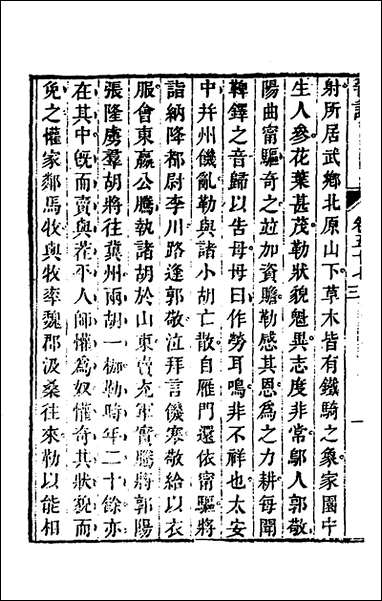 卷五十七 三
射所居武鄉北原山下草木皆有鐵騎之象家園中
生人參花葉甚茂勒狀貌魁異志度非常鄔人郭敬
陽曲甯驅奇之竝加資贍勒感其恩為之力耕每聞
鞞鐸之音歸以告母母曰作勞耳鳴非不祥也太安
中并州饑亂勒與諸小胡亡散自雁門還依甯驅將
詣納降都尉李川路逢郭敬泣拜言饑寒敬給以衣
服會東嬴公騰執諸胡於山東賣充軍實騰將郭陽
張隆虜羣胡將往冀州兩胡一枷勒時年二十餘亦
在其中旣而賣與茌平人師懽為奴懽奇其狀貌而
免之懽家鄰馬牧與牧率魏郡汲桑往來勒以能相